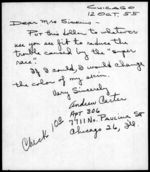 CHICAGO
12 OCT. 55
Dear Mrs
For this dollar to whatever
use you see fit to reduce the
trouble caused by the "super
race".
If I could, I would change
the color of my skin.
Very Sincerely
Andrew Carter
APT 306
7711 No. Paulina St
Chicago 26, Ill.
Check